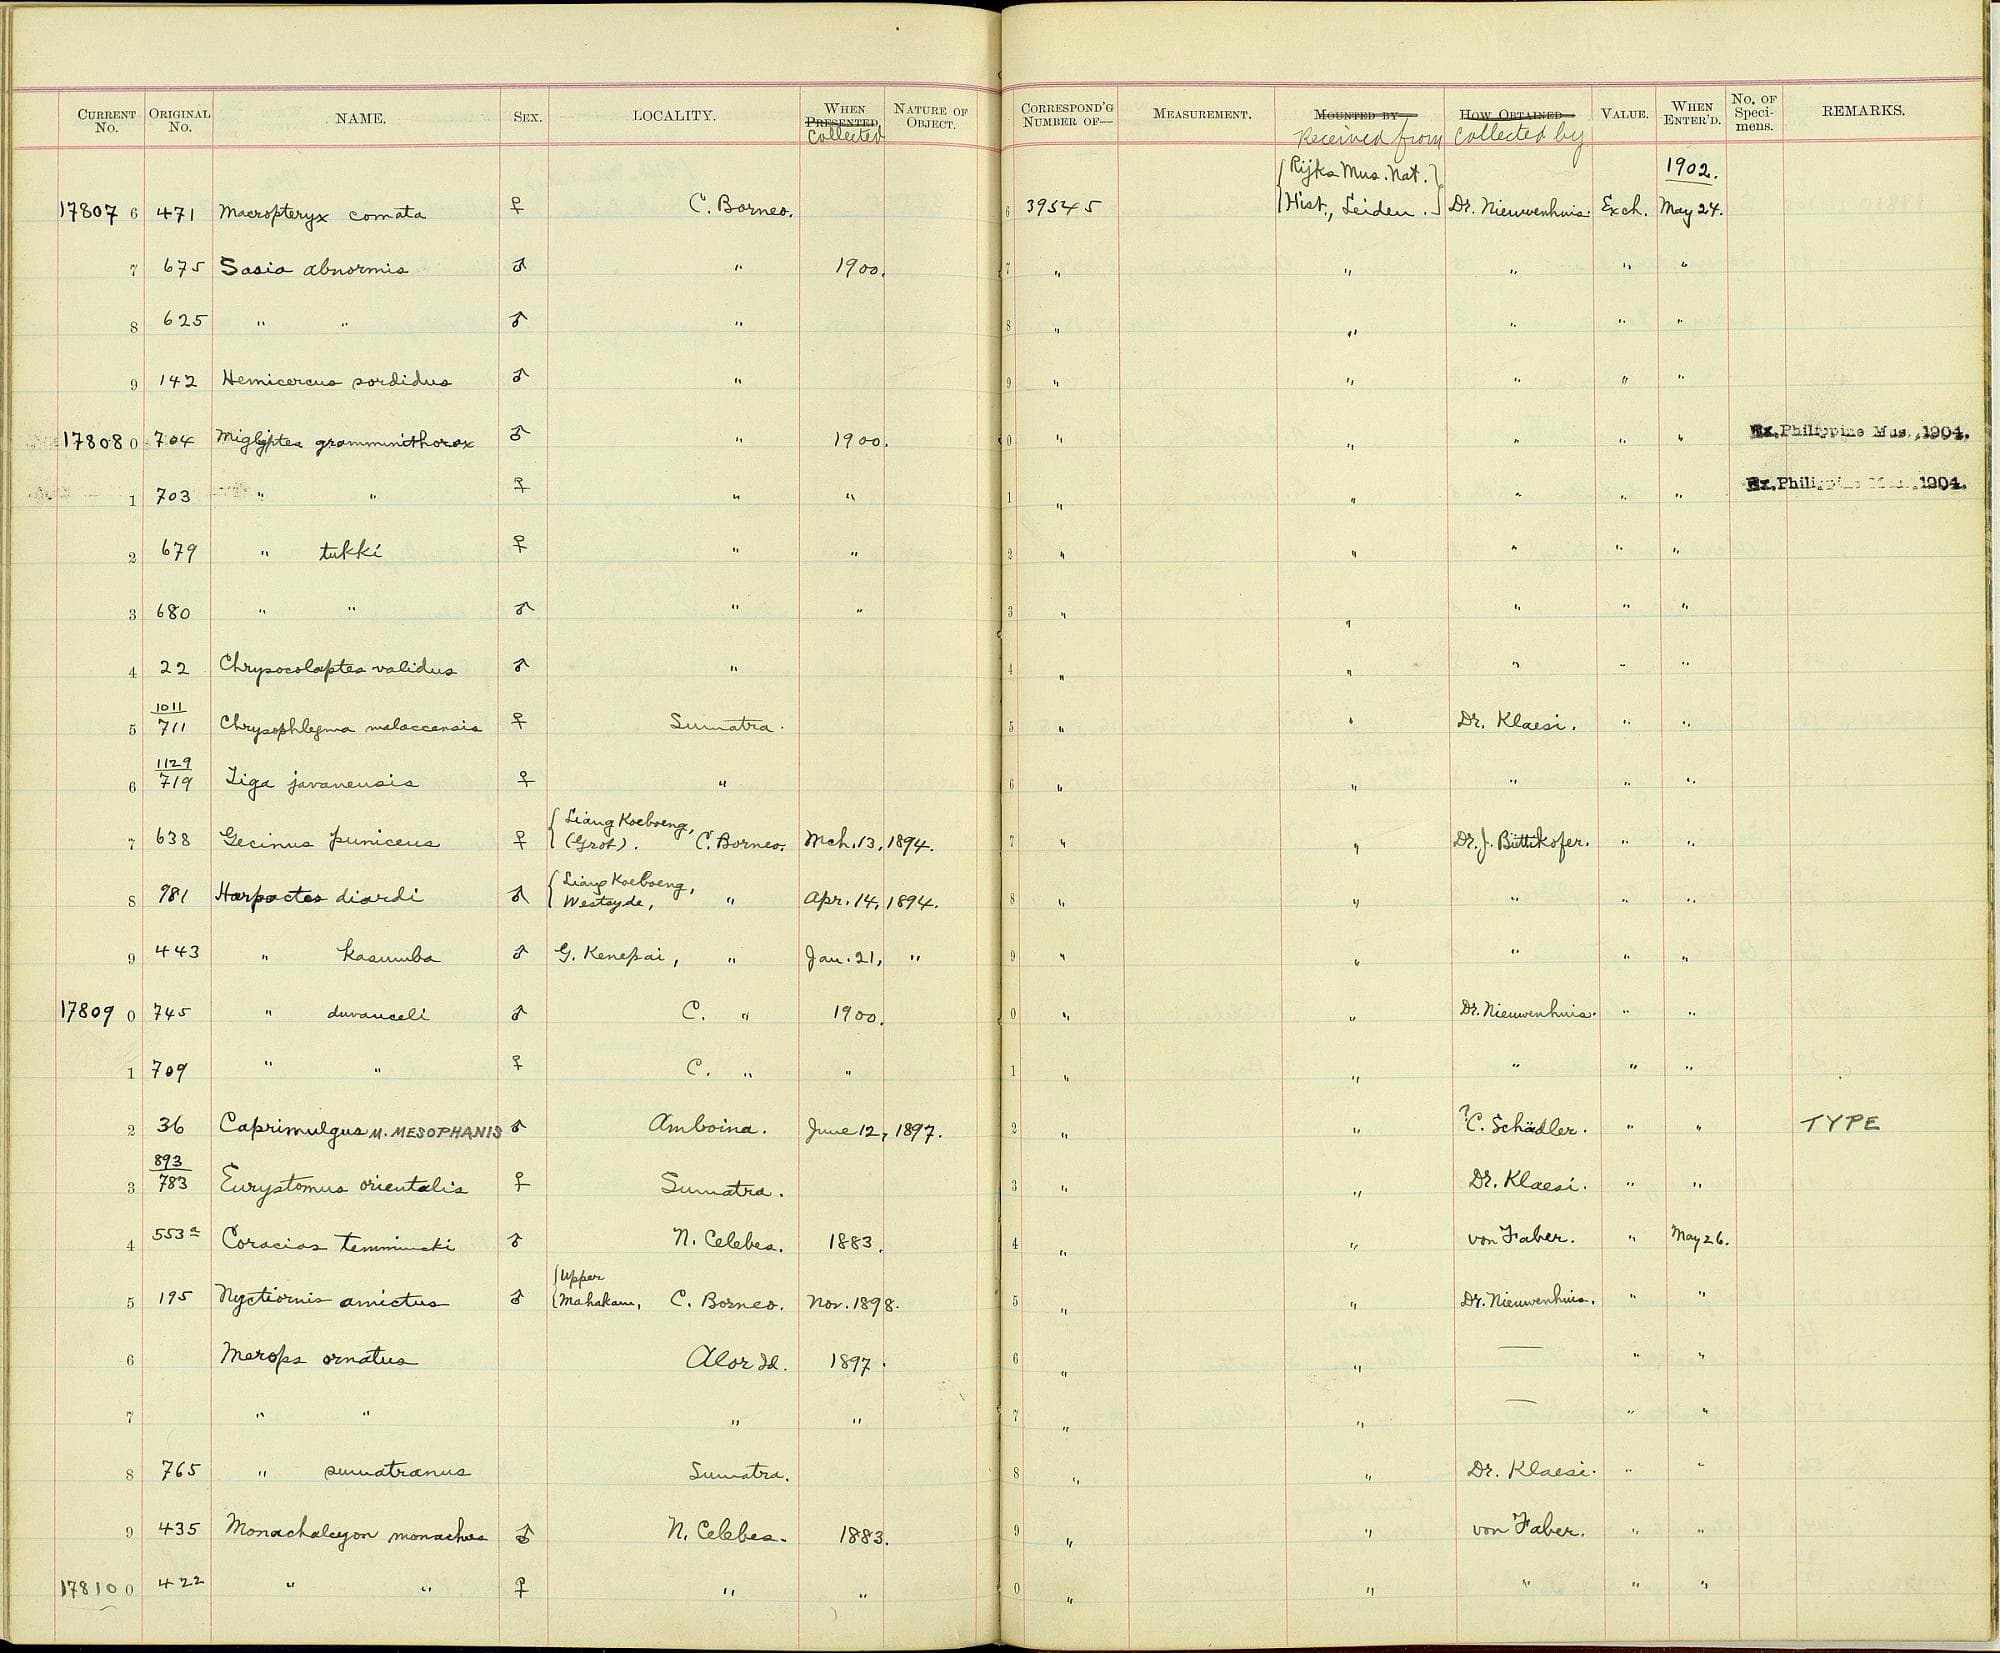 CURRENT No. ORIGINAL No. NAME. SEX. LOCALITY. WHEN PRESENTED. Collected NATURE OF OBJECT. CORRESPOND'G NUMBER OF— MEASUREMENT. MOUNTED BY— Received from HOW OBTAINED— Collected by VALUE. WHEN ENTER'D. No. OF Speci-mens. REMARKS.
1902.
17807 6 471 Macropteryx comata ♀ C. Borneo. 6 39545 {Rijks Mus. Nat. Hist., Leiden.} Dr. Nieuwenhuis. Exch. May 24.
7 675 Sasia abnormis ♂ " 1900. 7 " " " " "
8 625 " " ♂ " 8 " " " " "
9 142 Hemicercus sordidus ♂ " 9 " " " " "
17808 0 704 Miglyptes gramminithorax ♂ " 1900. 0 " " " " " Ex. Philippine Mus., 1904.
1 703 " " ♀ " " 1 " " " " " Ex. Philippine Mus., 1904.
2 679 " tukki ♀ " " 2 " " " " "
3 680 " " ♂ " " 3 " " " " "
4 22 Chrysocolaptes validus ♂ " 4 " " " " "
5 1011/711 Chrysophlegma malaccensis ♀ Sumatra. 5 " " Dr. Klaesi. " "
6 1129/719 Tiga javanensis ♀ " 6 " " " " "
7 638 Gecinus puniceus ♀ {Liang Koeboeng, (Grot). C. Borneo. Mch. 13, 1894. 7 " " Dr. J. Büttikofer. " "
8 981 Harpactes diardi ♂ {Liang Koeboeng, Westzyde, " Apr. 14, 1894. 8 " " " " "
9 443 " kasumba ♂ G. Kenepai, " Jan. 21, " 9 " " " " "
17809 0 745 " duvauceli ♂ C. " 1900. 0 " " Dr. Nieuwenhuis. " "
1 709 " " ♀ C. " " 1 " " " " "
2 36 Caprimulgus M. MESOPHANIS ♂ Amboina. June 12, 1897. 2 " " ?C. Schädler. " " TYPE
3 893/783 Eurystomus orientalis ♀ Sumatra. 3 " " Dr. Klaesi. " "
4 553a Coracias temmincki ♂ N. Celebes. 1883. 4 " " von Faber. " May 26.
5 195 Nyctiornis amictus ♂ {Upper Mahakam, C. Borneo. Nov. 1898. 5 " " Dr. Nieuwenhuis. " "
6 Merops ornatus Alor Id. 1897. 6 " " — " "
7 " " " " 7 " " — " "
8 765 " sumatranus Sumatra. 8 " " Dr. Klaesi. " "
9 435 Monachalcyon monachus ♂ N. Celebes. 1883. 9 " " von Faber. " "
17810 0 422 " " ♀ " " 0 " " " " "